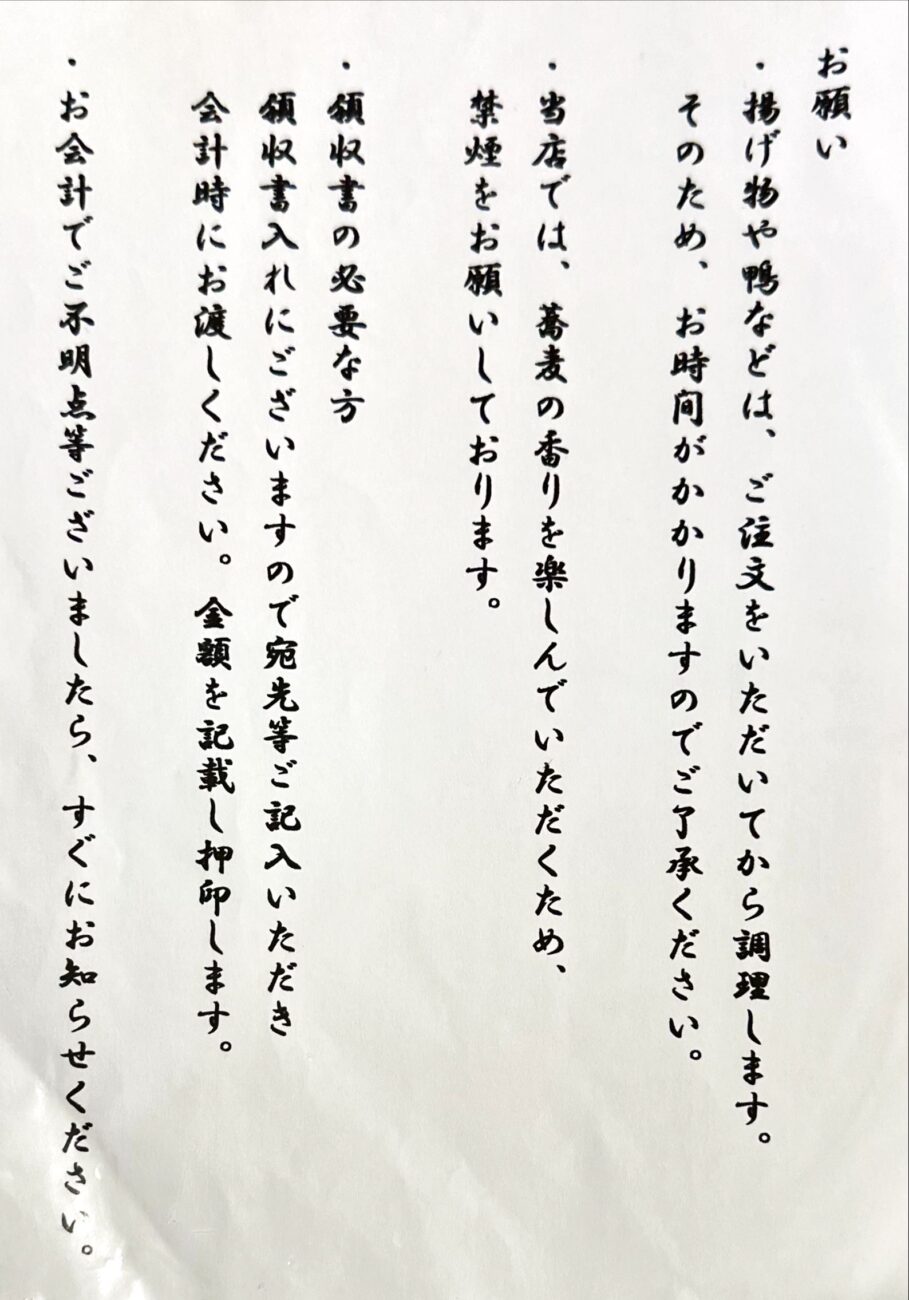 お願い
・揚げ物や鴨などは、ご注文をいただいてから調理します。
そのため、お時間がかかりますのでご了承ください。
・当店では、蕎麦の香りを楽しんでいただくため、
禁煙をお願いしております。
・領収書の必要な方
領収書入れにございますので宛先等ご記入いただき
会計時にお渡しください。金額を記載し押印します。
・お会計でご不明点等ございましたら、すぐにお知らせください。